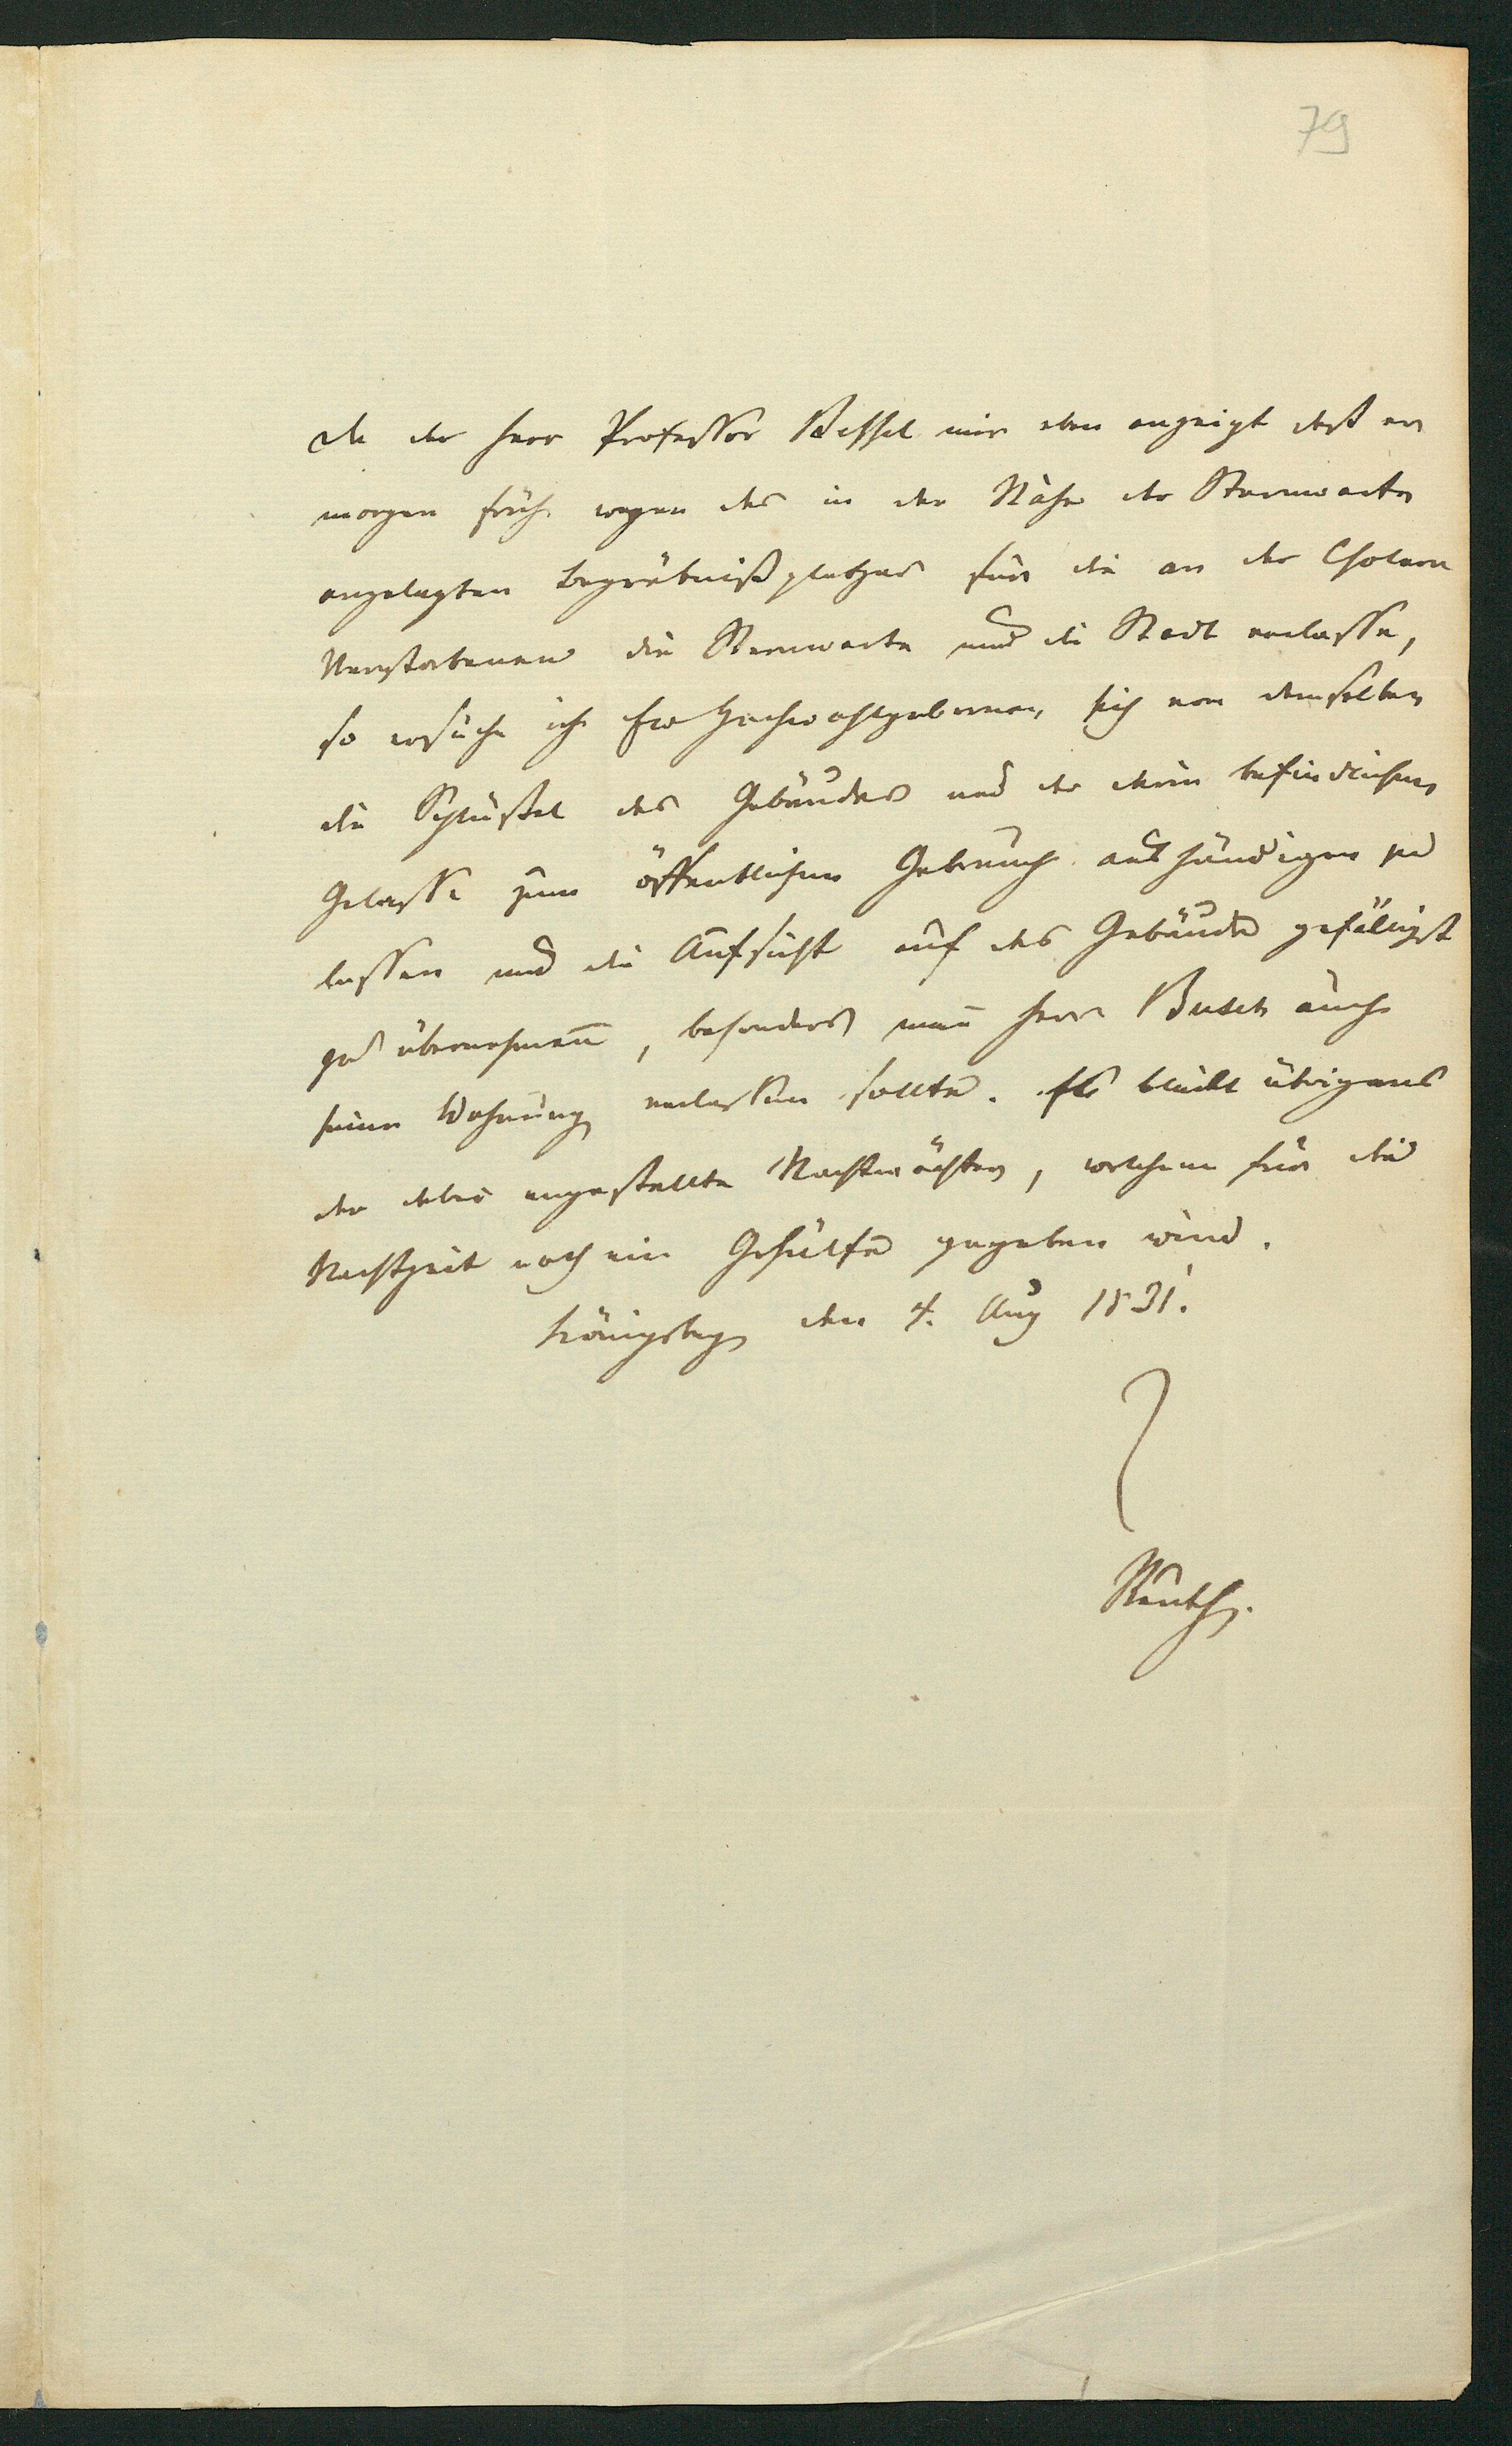 79
Da der Herr Professor Bessel mir eben anzeigt daß er
morgen früh wegen des in der Nähe der Sternwarte
angelegten Begräbnißplatzes für die an der Cholera
Verstorbenen die Sternwarte und die Stadt verlasse,
so ersuche ich Ew Hochwohlgeboren, sich von demselben
die Schlüssel des Gebäudes und der darin befindlichen
Gelasse zum öffentlichen Gebrauch aushändigen zu
lassen und die Aufsicht auf das Gebäude gefälligst
zu übernehmen, besonders wenn Herr Busch auch
seine Wohnung verlassen sollte. Es bleibt übrigens
der dabei angestellte Nachtwächter, welchem für die
Nachtzeit noch ein Gehülfe gegeben wird.
Königsberg den 4. Aug 1831.